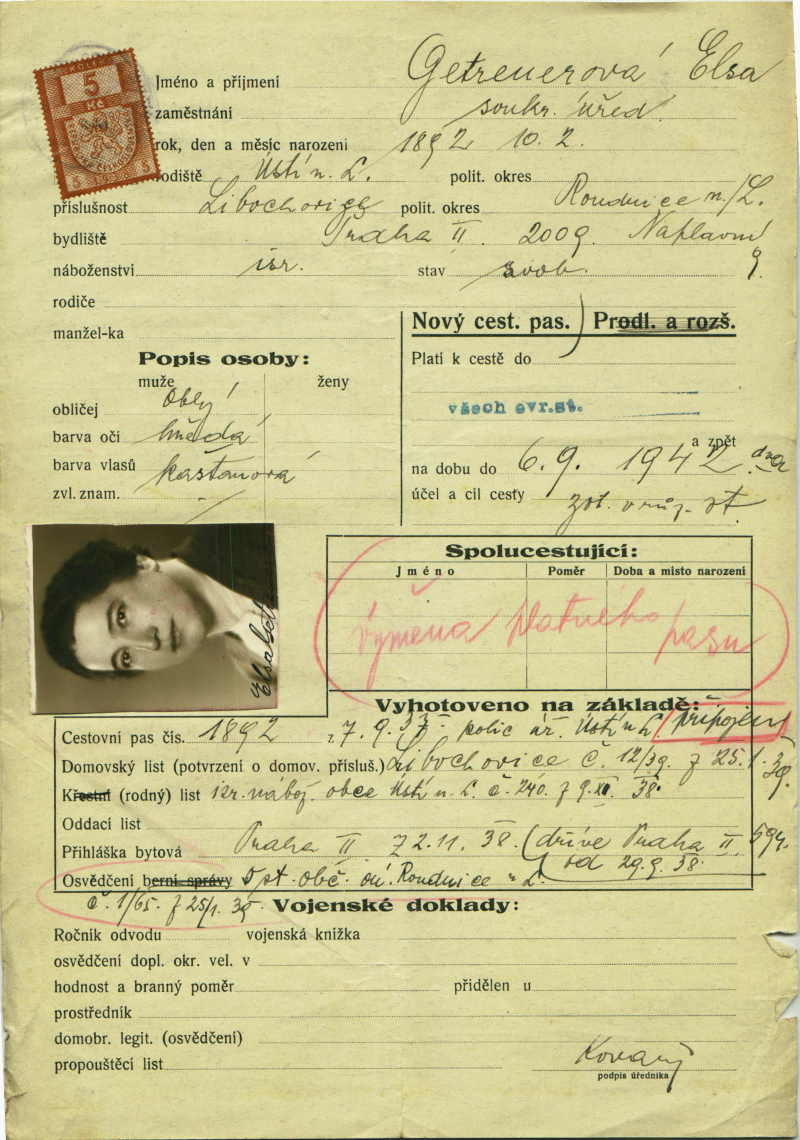 KOLEK
5
Kč
Jméno a příjmení Getreuerová Elsa
zaměstnání soukr. úřed.
rok, den a měsíc narození 1892 10. 2.
rodiště Ústí n. L. polit. okres
příslušnost Libochovice polit. okres Roudnice n./L.
bydliště Praha II. 2009. Náplavní
náboženství isr. stav svob. 9.
rodiče
manžel-ka
Nový cest. pas. Prodl. a rozš.
Popis osoby:
Platí k cestě do
muže ženy
obličej oblý
všech evr. st.
barva očí hnědá
a zpět
barva vlasů kaštanová
na dobu do 6. 9. 1942 dva
zvl. znam.
účel a cíl cesty zot. v růz. st.
Spolucestující:
Jméno Poměr Doba a místo narození
výměna platného pasu
Elsabeth
Vyhotoveno na základě:
Cestovní pas čís. 1892 z 7. 9. 37 polic. úř. Ústí n L připojen
Domovský list (potvrzení o domov. přísluš.) Libochovice č. 12/39. z 25. 1. 39.
Křestní (rodný) list isr. nábož. obce Ústí n. L. č. 240. z 9. XI. 38.
Oddací list
Přihláška bytová Praha II z 2. 11. 38. (dříve Praha II, 594.
od 29. 9. 38.
Osvědčení berní správy O st. obč. Roudnice n. L.
č. 1/65. z 25/1. 39.
Vojenské doklady:
Ročník odvodu vojenská knížka
osvědčení dopl. okr. vel. v
hodnost a branný poměr přidělen u
prostředník
domobr. legit. (osvědčení)
propouštěcí list
Kovařý
podpis úředníka